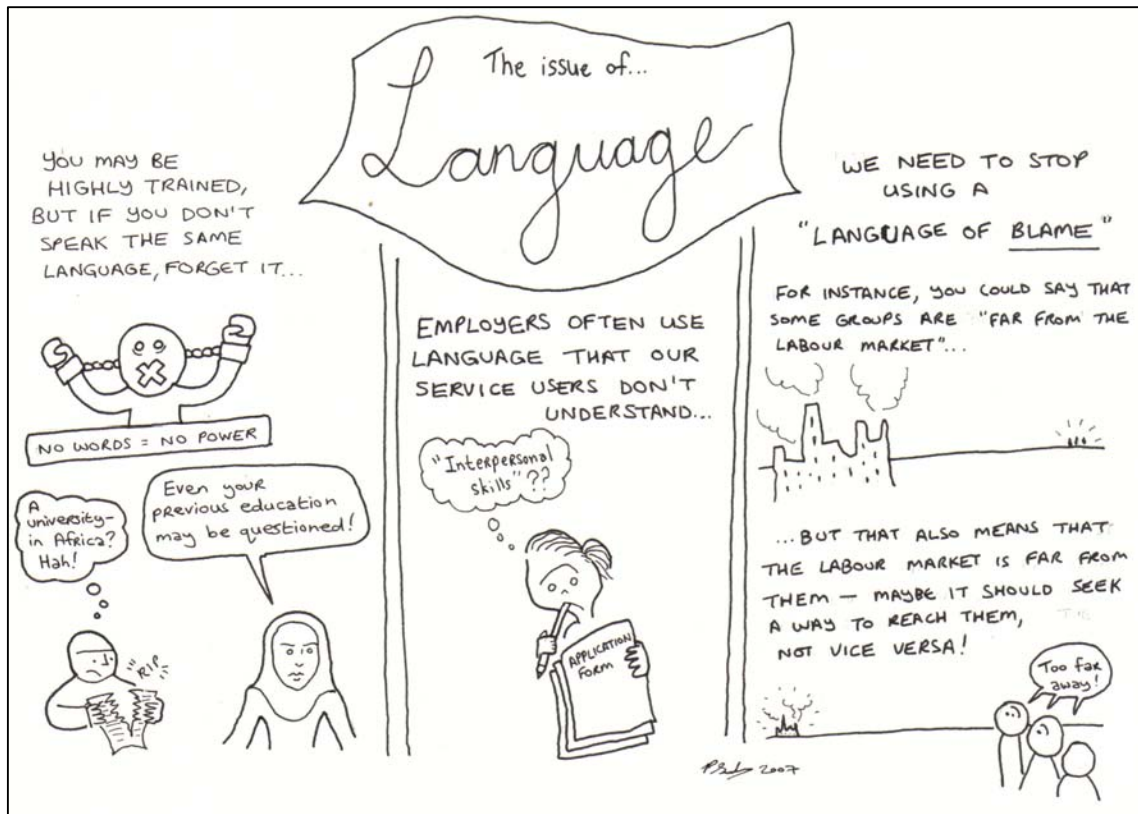 The issue of...
Language
YOU MAY BE
HIGHLY TRAINED,
BUT IF YOU DON'T
SPEAK THE SAME
LANGUAGE, FORGET IT...
NO WORDS = NO POWER
A
university-
in Africa?
Hah!
RIP
Even your
previous education
may be questioned!
EMPLOYERS OFTEN USE
LANGUAGE THAT OUR
SERVICE USERS DON'T
UNDERSTAND...
"Interpersonal
skills"??
APPLICATION
FORM
WE NEED TO STOP
USING A
"LANGUAGE OF BLAME"
FOR INSTANCE, YOU COULD SAY THAT
SOME GROUPS ARE "FAR FROM THE
LABOUR MARKET"...
...BUT THAT ALSO MEANS THAT
THE LABOUR MARKET IS FAR FROM
THEM — MAYBE IT SHOULD SEEK
A WAY TO REACH THEM,
NOT VICE VERSA!
Too far
away!
2007